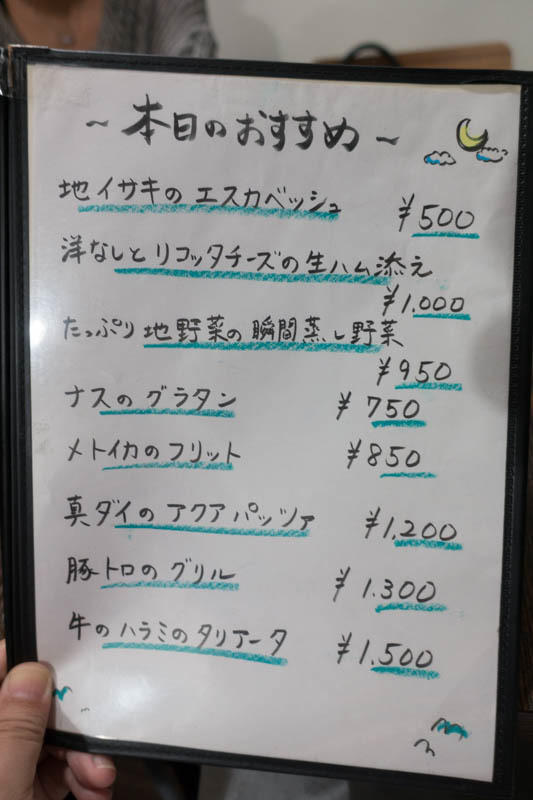 ~ 本日のおすすめ ~
地イサキのエスカベッシュ ¥500
洋なしとリコッタチーズの生ハム添え
¥1.000
たっぷり地野菜の瞬間蒸し野菜
¥950
ナスのグラタン ¥750
メトイカのフリット ¥850
真ダイのアクアパッツァ ¥1,200
豚トロのグリル ¥1.300
牛のハラミのタリアータ ¥1.500